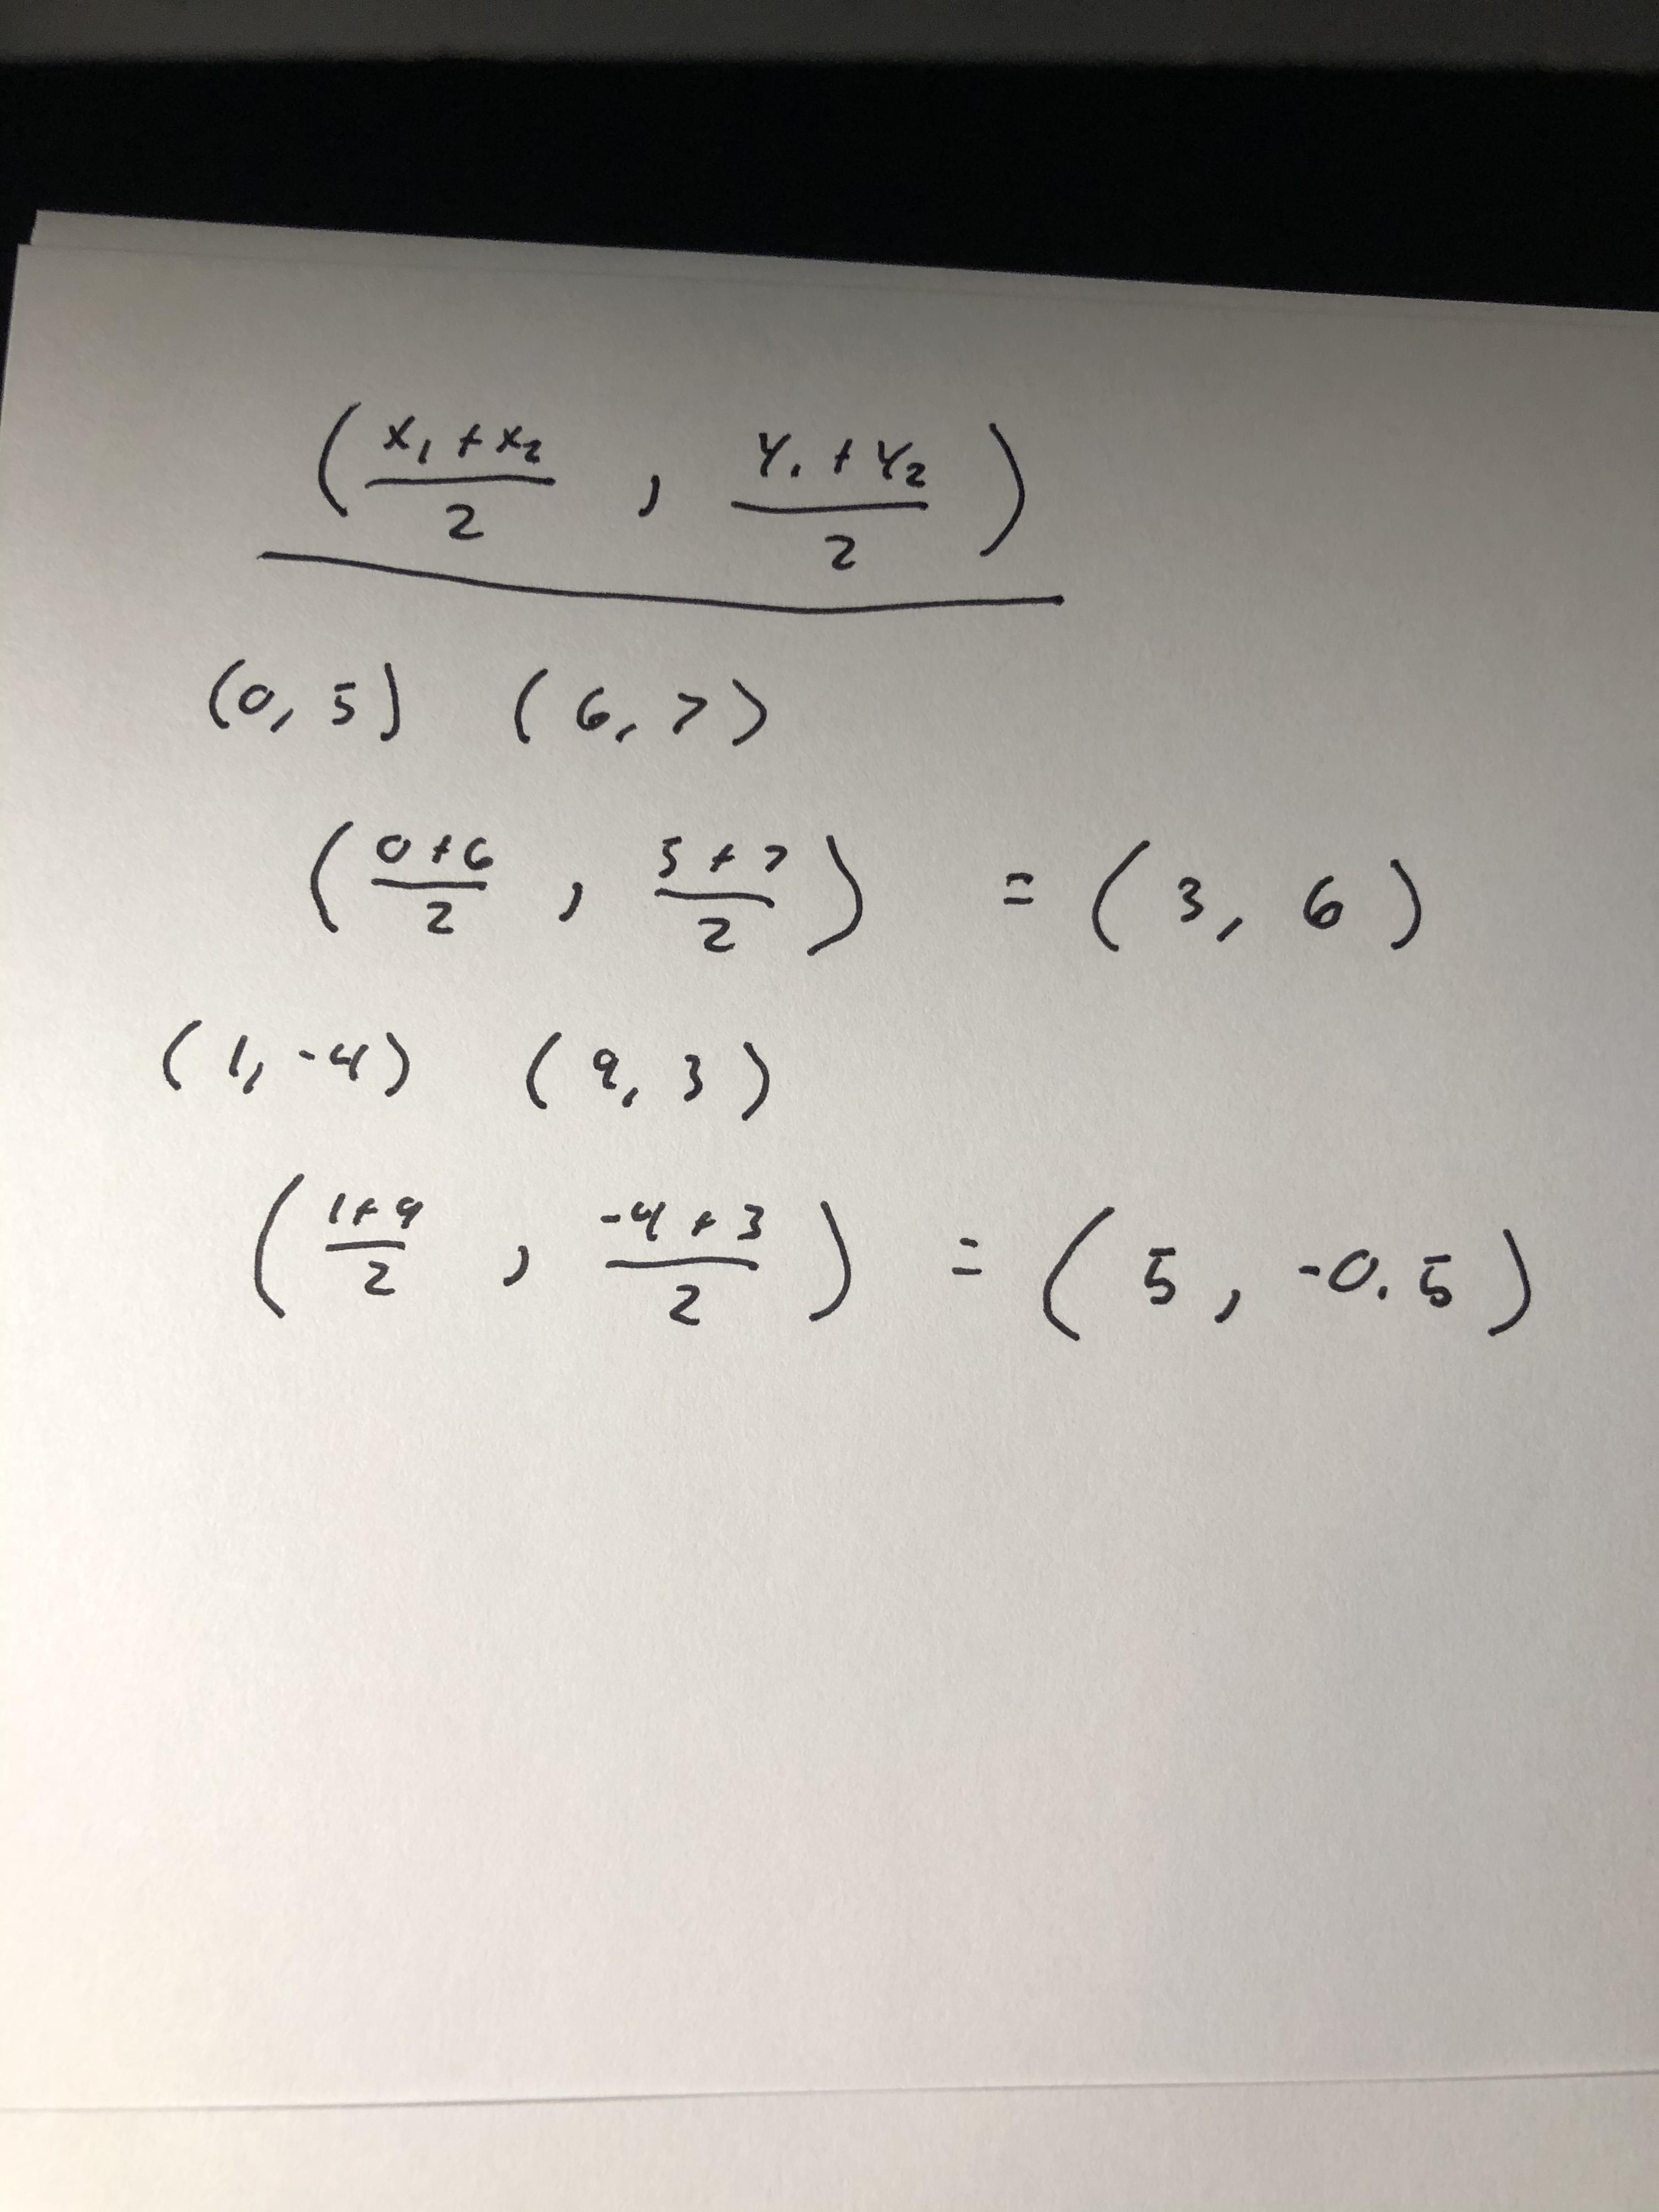 (x₁+x₂/2, y₁+y₂/2)
(0, 5) (6, 7)
(0+6/2, 5+7/2) = (3, 6)
(1, -4) (9, 3)
(1+9/2, -4+3/2) = (5, -0.5)